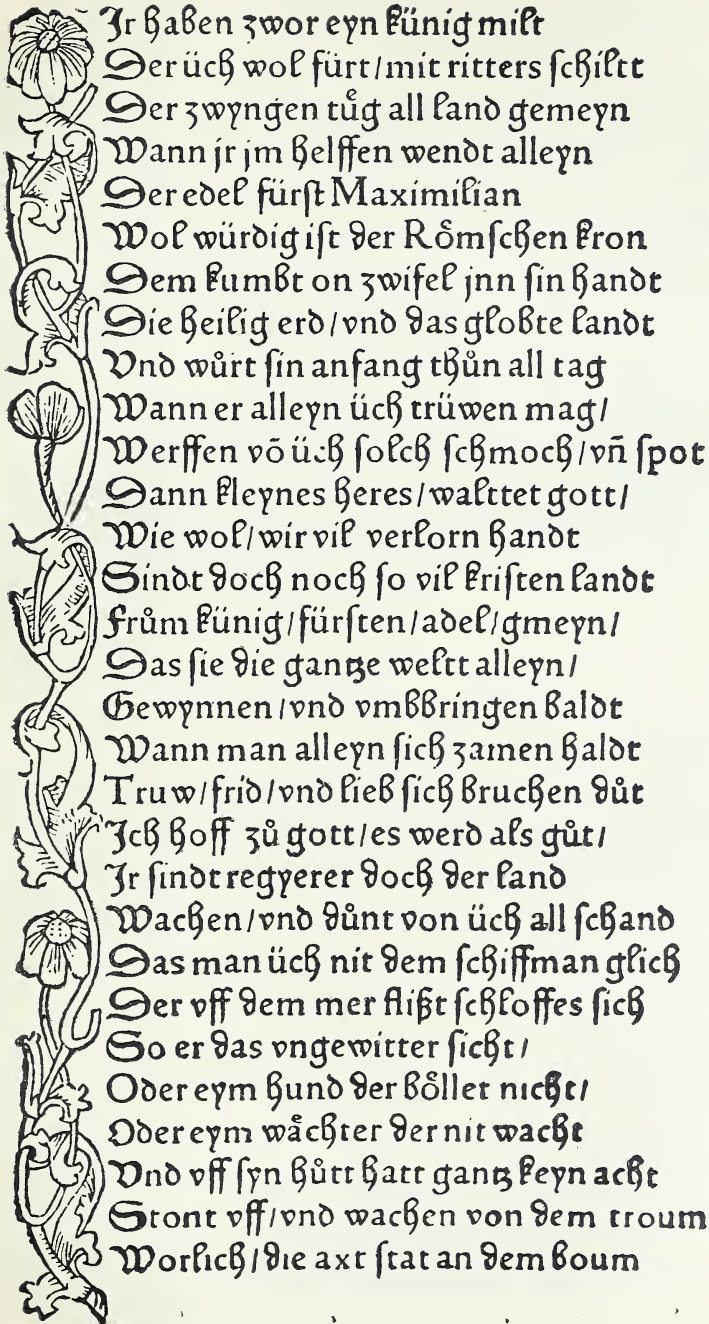 Jr haben zwor eyn künig milt
Der üch wol fürt/mit ritters schiltt
Der zwyngen tuͦg all land gemeyn
Wann jr jm helffen wendt alleyn
Der edel fürst Maximilian
Wol würdig ist der Roͤmschen kron
Dem kumbt on zwifel jnn sin handt
Die heilig erd/vnd das globte landt
Vnd wuͤrt sin anfang thuͦn all tag
Wann er alleyn üch trüwen mag/
Werffen vō üch solch schmoch/vñ spot
Dann kleynes heres/walttet gott/
Wie wol/wir vil verlorn handt
Sindt doch noch so vil kristen landt
Fruͦm künig/fürsten/adel/gmeyn/
Das sie die gantze weltt alleyn/
Gewynnen/vnd vmbbringen baldt
Wann man alleyn sich zamen haldt
Truw/frid/vnd lieb sich bruchen duͦt
Jch hoff zuͦ gott/es werd als guͦt/
Jr sindt regyerer doch der land
Wachen/vnd duͦnt von üch all schand
Das man üch nit dem schiffman glich
Der vff dem mer flißt schloffes sich
So er das vngewitter sicht/
Oder eym hund der boͤllet nicht/
Oder eym waͤchter der nit wacht
Vnd vff syn huͦtt hatt gantz keyn acht
Stont vff/vnd wachen von dem troum
Worlich/die axt stat an dem boum